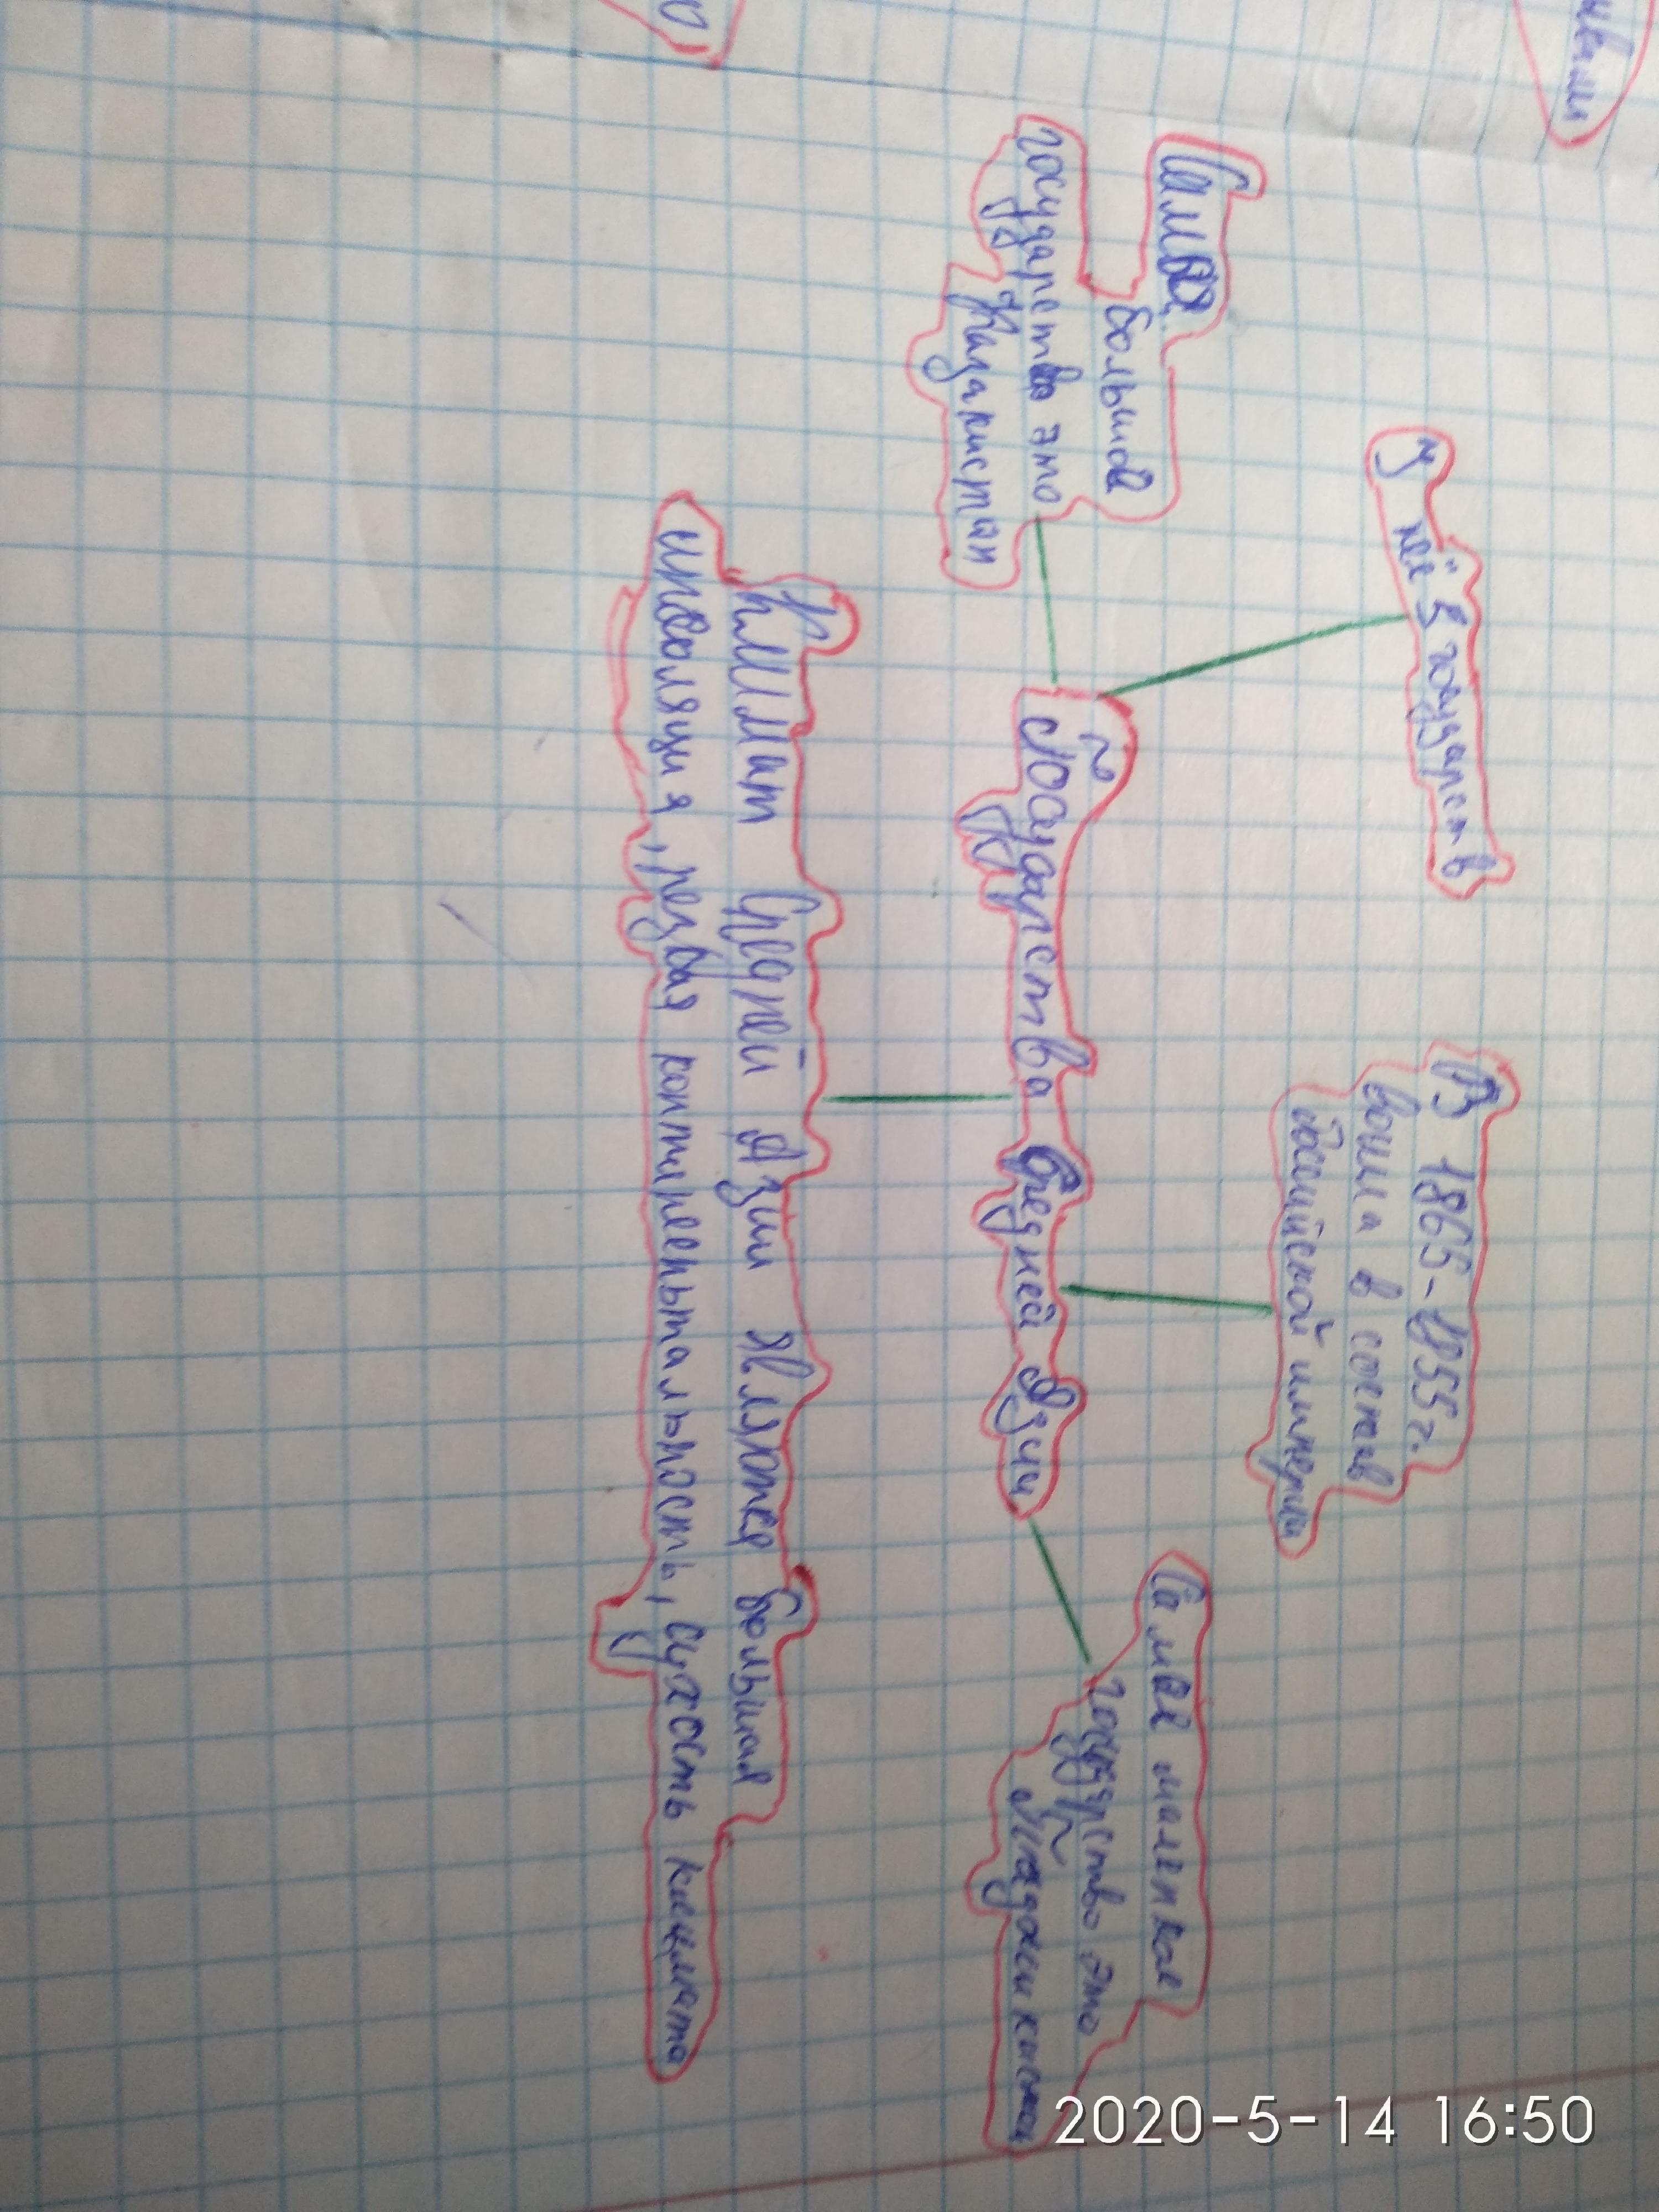 ывами
У неё 5 государств
В 1865-1855 г.
вошла в состав
Российской империи
Самое большое
государство это
Казахистан
Государства Средней Азии
Самое маленькое
государство это
Таджикистан
Климат Средней Азии является большая
инсоляция, резкая континентальность, сухость климата
2020-5-14 16:50